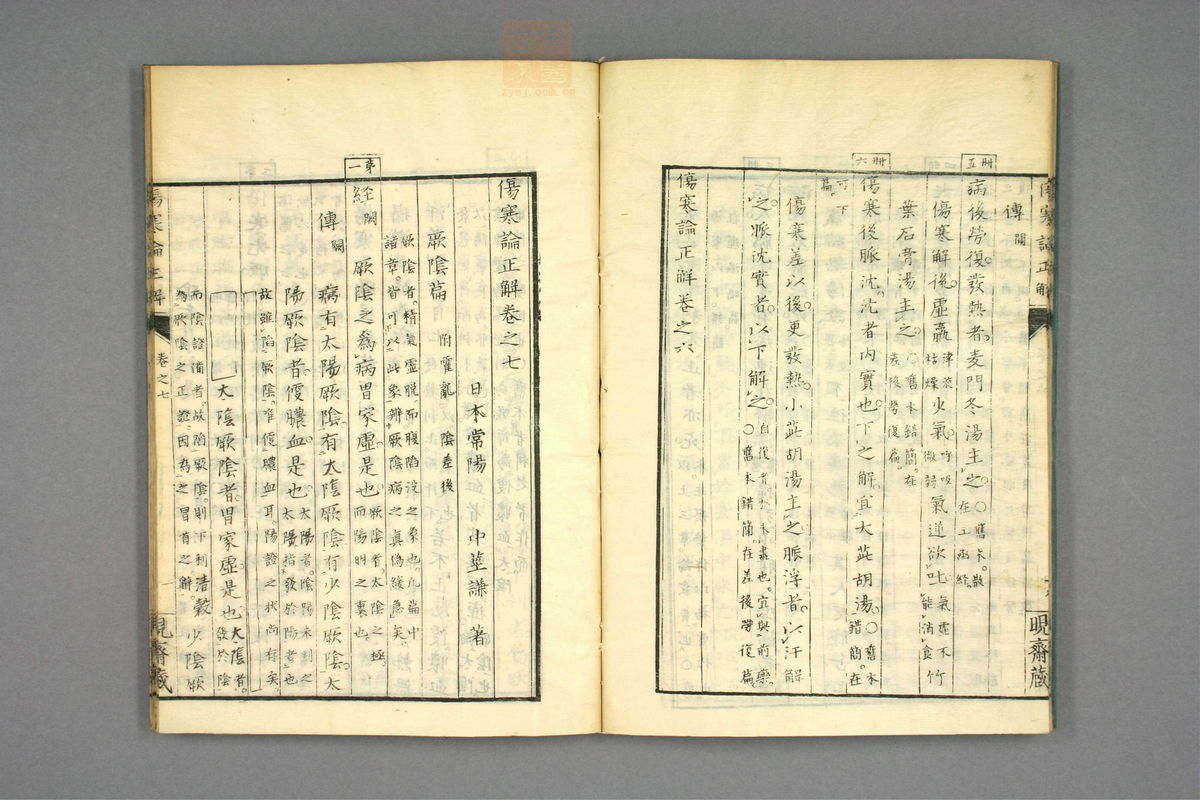 傳闕
卌五
病後勞復發熱者麦門冬湯主之○舊本散在工函經
傷寒解後虛羸津液枯燥少氣呼吸微弱氣逆欲吐氣虛不能消食竹
葉石膏湯主之○舊本錯簡在差後勞復篇
卌六
傷寒後脈沈沈者内實也下之解宜大茈胡湯○舊本錯簡在
可下篇
傷寒差以後更發熱小茈胡湯主之脈浮者以汗解
之脈沈實者以下解之○舊本錯簡在差後勞復篇
傷寒論正解卷之六
晛齋藏
傷寒論正解卷之七
日本常陽 中莖謙 著
厥陰篇 附霍亂 陰差後
厥陰者精氣虛脱而腹陷没之象也凡篇中
諸章皆可以此象辨厥陰病之真偽緩急矣
第一
経闕 厥陰之爲病冒家虛是也厥陰者太陰之極而陽明之裏也
傳闕 病有太陽厥陰有太陰厥陰有少陰厥陰太
陽厥陰者便膿血是也太陽者陰陽未判之太陽指發於陽者也
故雖陷厥陰唯便膿血耳陽證之状尚存矣
太陰厥陰者冒家虛是也太陰者發於陰
而陰證備者故陷厥陰則下利清穀少陰厥
爲厥陰之正證因爲之冒首之解
傷寒論正解 卷之七 晛齋藏